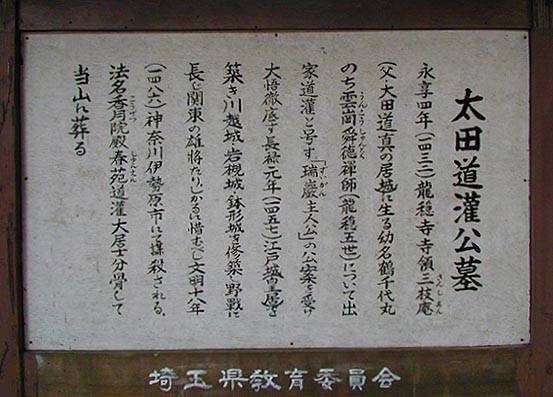 太田道灌公墓
永享四年(一四三二)龍穏寺寺領三枝庵
さんしあん
(父・太田道真の居城)に生る幼名鶴千代丸
のち雲岡舜徳禅師(龍穏五世)について出
うんこうしゅんとく
家道灌と号す。「瑞巖主人公」の公案を受け
ずいがん
大悟徹底す 長禄元年(一四五七)江戸城
築き川越城・岩槻城・鉢形城を修築・野戦に
長じ関東の雄将たり。かるに惜むべし文明十八年
(一四八六)神奈川伊勢原市にて謀殺される。
法名香月院殿春苑道灌大居士分骨して
こうげつ
しゅんえん
当山に葬る
埼玉県教育委員会